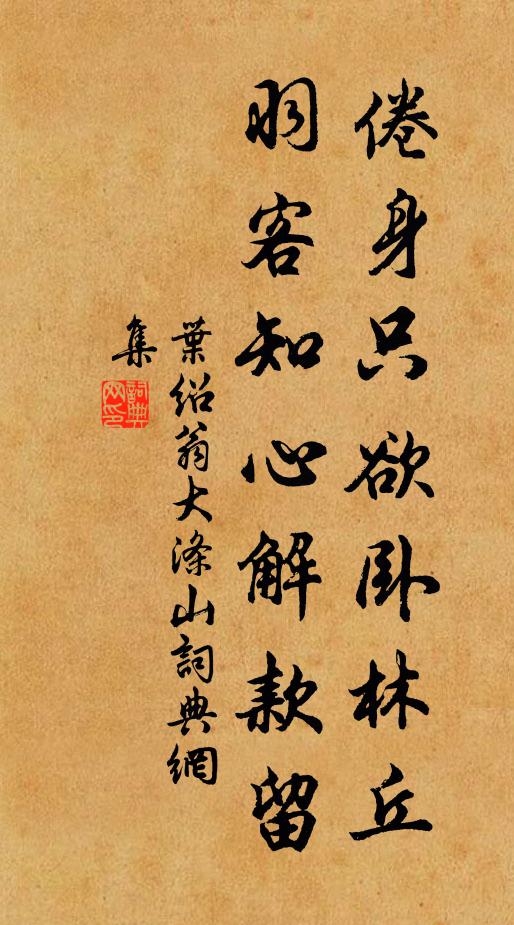 倦身只欲卧林丘
羽客知心解款留
葉紹翁大滌山詞典網
集
詞典
网印